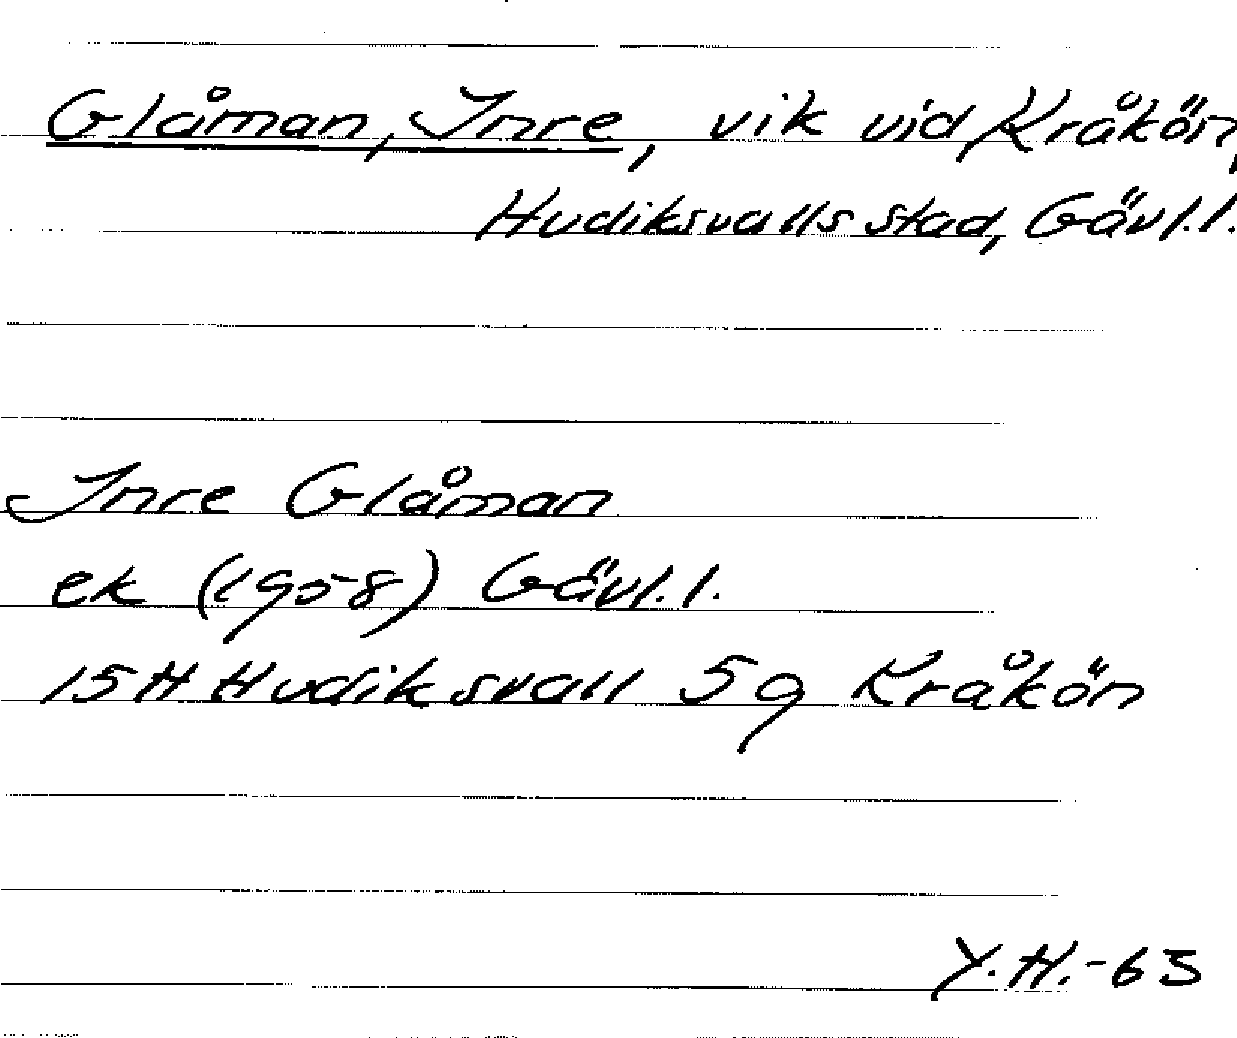 Glåman, Inre, vik vid Kråkön,
Hudiksvalls stad, Gävl.l.
Inre Glåman
ek (1958) Gävl.l.
15H Hudiksvall 5g Kråkön
Y.H.-63